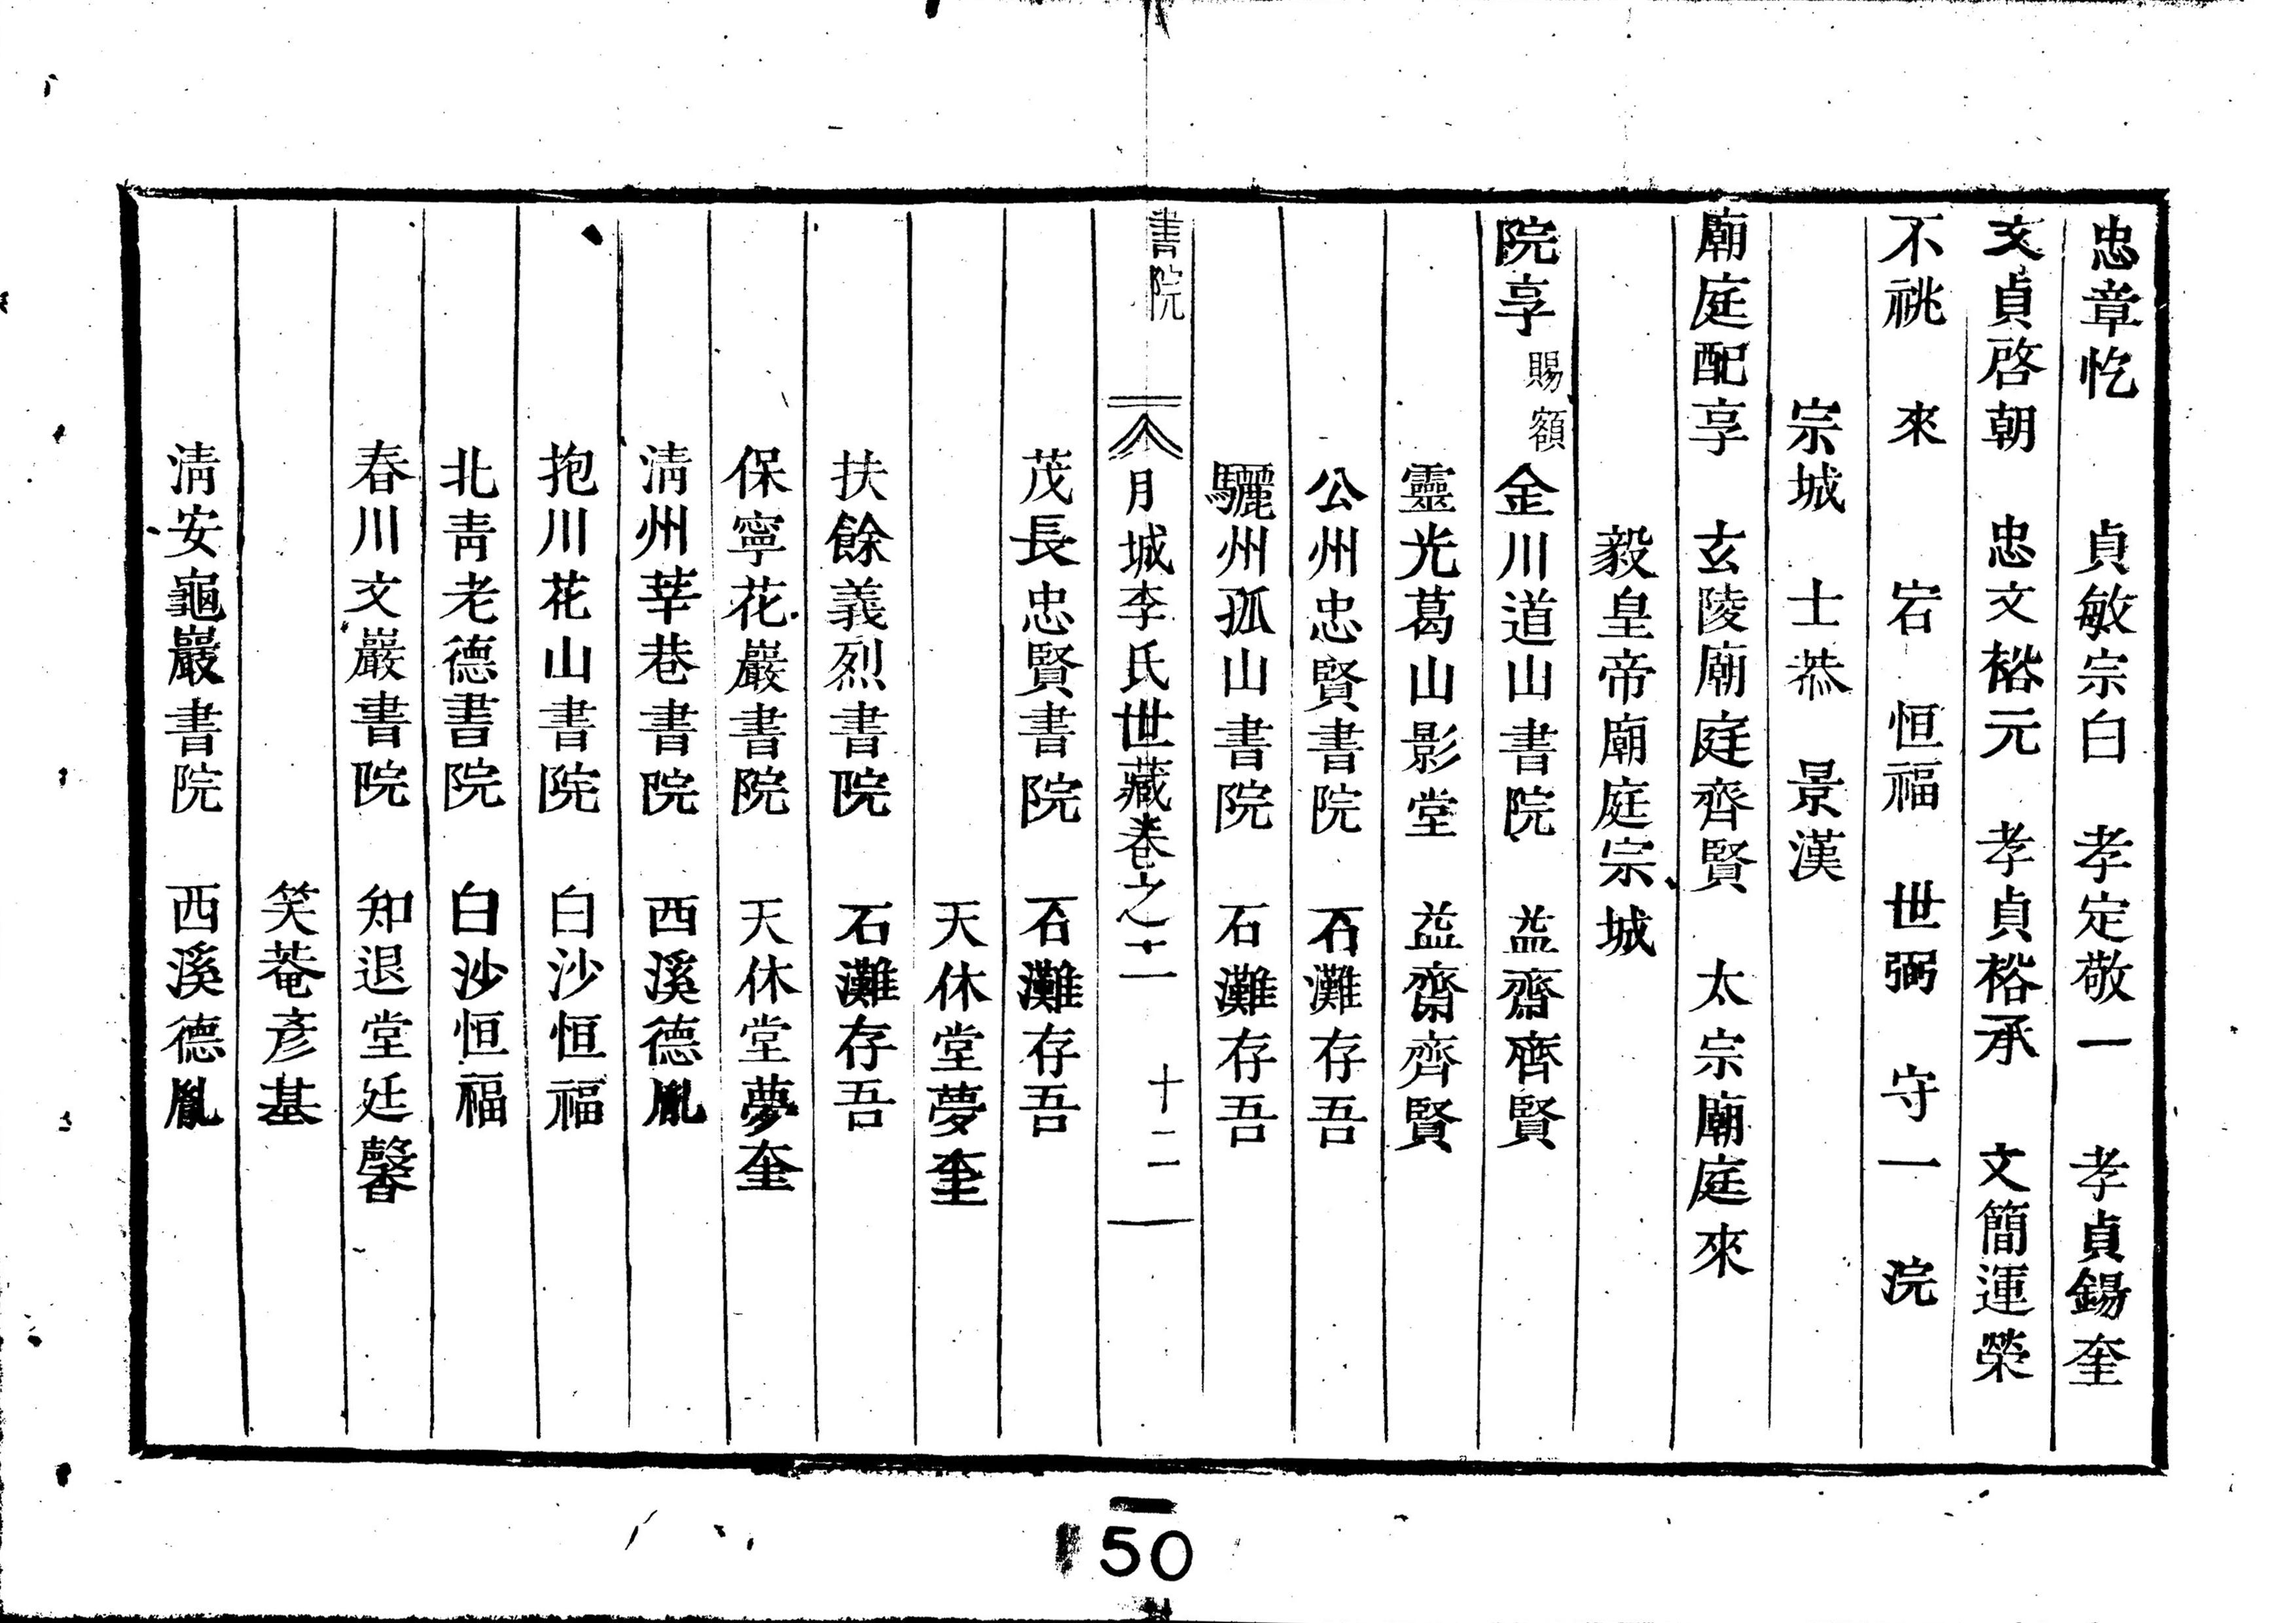 忠章忔 貞敏宗白 孝定敬一 孝貞錫奎
文貞啓朝 忠文裕元 孝貞裕承 文簡運榮
不祧 來 宕 恒福 世弼 守一 浣
宗城 士恭 景漢
廟庭配享 玄陵廟庭齊賢 太宗廟庭來
毅皇帝廟庭宗城
院享 賜額 金川道山書院 益齋齊賢
靈光葛山影堂 益齋齊賢
公州忠賢書院 石灘存吾
驪州孤山書院 石灘存吾
書院 月城李氏世藏卷之二 十二
茂長忠賢書院 石灘存吾
天休堂夢奎
扶餘義烈書院 石灘存吾
保寧花巖書院 天休堂夢奎
淸州莘巷書院 西溪德胤
抱川花山書院 白沙恒福
北靑老德書院 白沙恒福
春川文巖書院 知退堂廷馨
笑菴彦基
淸安龜巖書院 西溪德胤
50